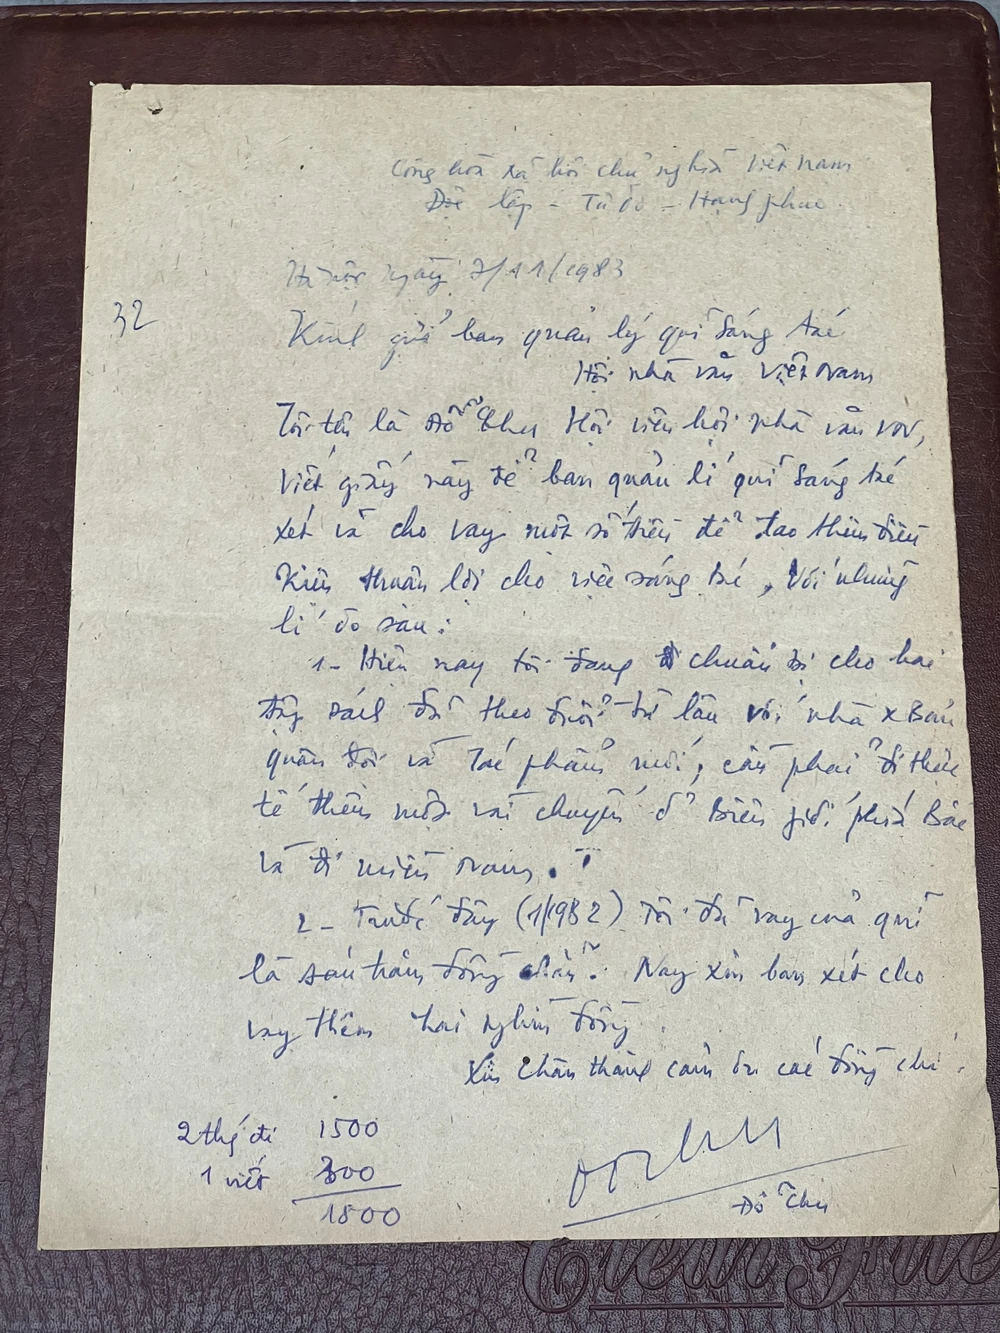 Cộng hòa xã hội chủ nghĩa Việt Nam
Độc lập - Tự do - Hạnh phúc.
Hà Nội ngày 7/11/1983
32
Kính gửi ban quản lý quĩ sáng tác
Hội nhà văn Việt Nam
Tôi tên là Đỗ Chu Hội viên hội nhà văn VN,
viết giấy này để ban quản lí quĩ sáng tác
xét và cho vay một số tiền để tạo thêm điều
kiện thuận lợi cho việc sáng tác, với những
lí do sau:
1- Hiện nay tôi đang chuẩn bị cho hai
tập sách đã theo đuổi từ lâu với nhà x Bản
quân đội và Tác phẩm mới, cần phải đi thực
tế thêm một vài chuyến ở Biên giới phía Bắc
và đi miền Nam.
2- Trước đây (1/1982) tôi đã vay của quĩ
là sáu trăm đồng chẵn. Nay xin ban xét cho
vay thêm hai nghìn đồng.
Xin chân thành cảm ơn các đồng chí.
2 thg đi 1500
1 viết 300
1800
Đỗ Chu